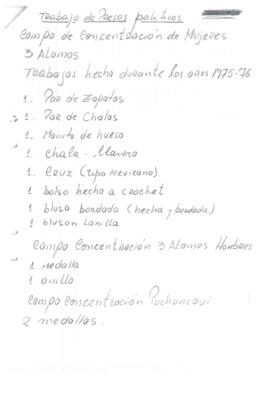 Trabajo de Presos políticos
Campo de Concentración de Mujeres
3 Alamos
Trabajos hecho durante los años 1975-76
1.. Par de Zapatos
1.. Par de Chalas
1. Manito de hueso
1. chala - llavero
1. Cruz (tipo Mexicano)
1 bolso hecho a crochet
1 blusa bordada (hecha y bordada)
1 bluson lanilla
Campo Concentración 3 Alamos Hombres
1 medalla
1 anillo
Campo Concentración Puchuncavi
2 medallas.